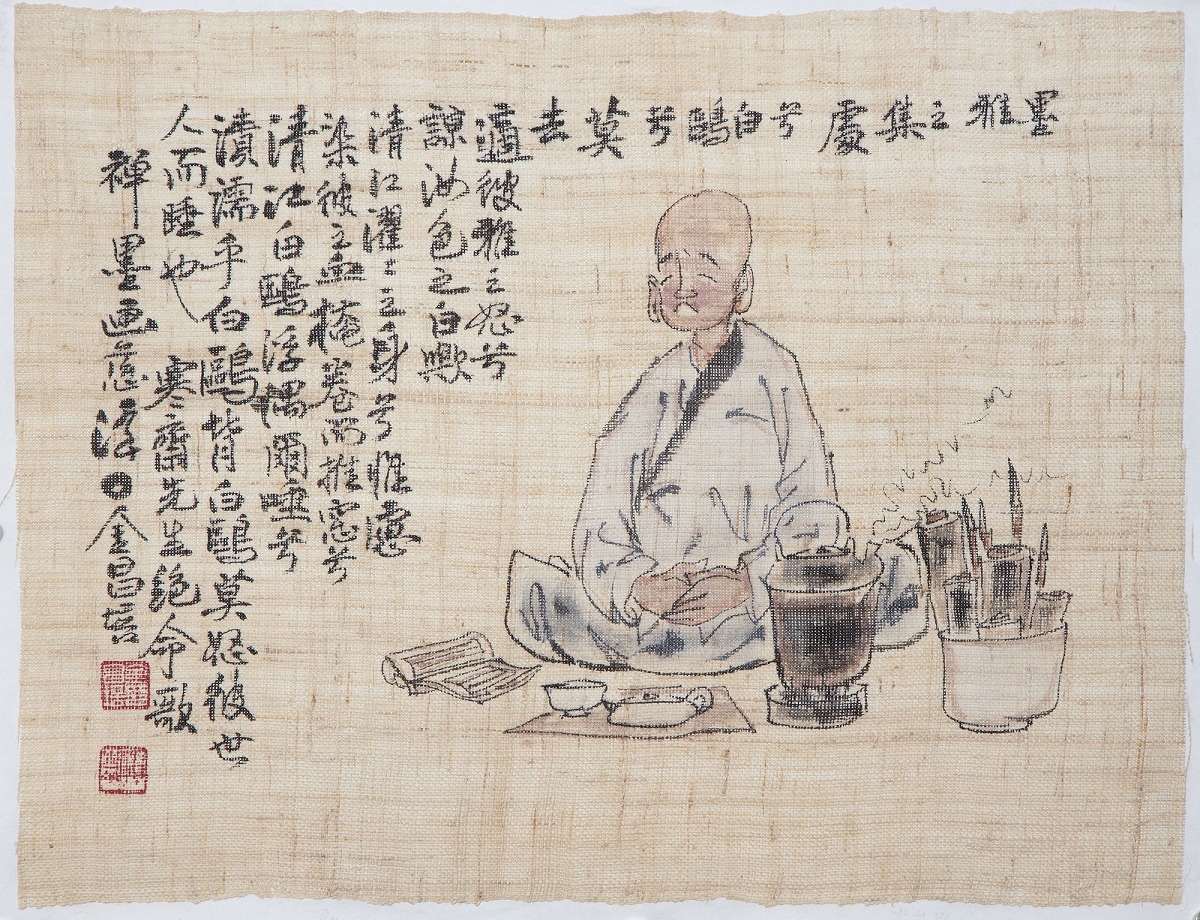 墨雅之集處兮白鷗兮莫去
適彼雅之怒兮
諒汝色之白歟
清江濯〻之身兮惟慮
染彼之血掩卷而推窓兮
清江白鷗浮偶爾唾兮
瀆濡乎白鷗背白鷗莫怒彼世
人而睡也 寒齋先生絶命歌
禪墨画意 金昌培